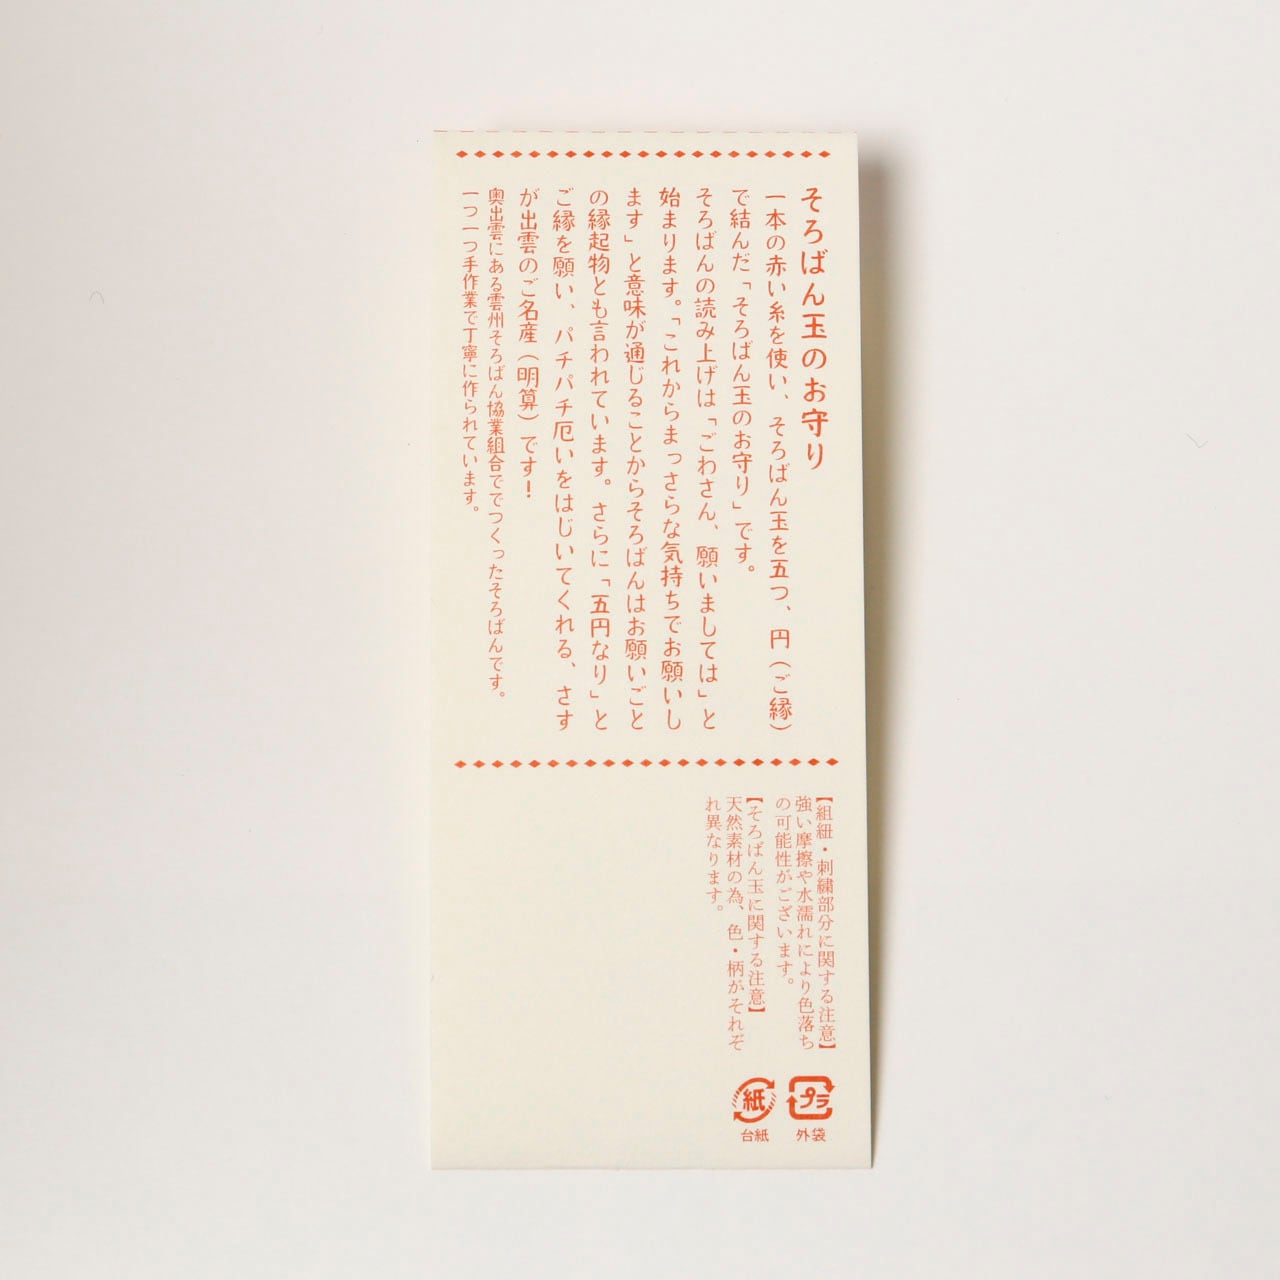 そろばん玉のお守り
一本の赤い糸を使い、そろばん玉を五つ、円（ご縁）
で結んだ「そろばん玉のお守り」です。
そろばんの読み上げは「ごわさん、願いましては」と
始まります。「これからまっさらな気持ちでお願いし
ます」と意味が通じることからそろばんはお願いごと
の縁起物とも言われています。さらに「五円なり」と
ご縁を願い、パチパチ厄いをはじいてくれる、さす
が出雲のご名産（明算）です！
奥出雲にある雲州そろばん協業組合ででつくったそろばんです。
一つ一つ手作業で丁寧に作られています。
【組紐・刺繍部分に関する注意】
強い摩擦や水濡れにより色落ち
の可能性がございます。
【そろばん玉に関する注意】
天然素材の為、色・柄がそれぞ
れ異なります。
プラ
外袋
紙
台紙